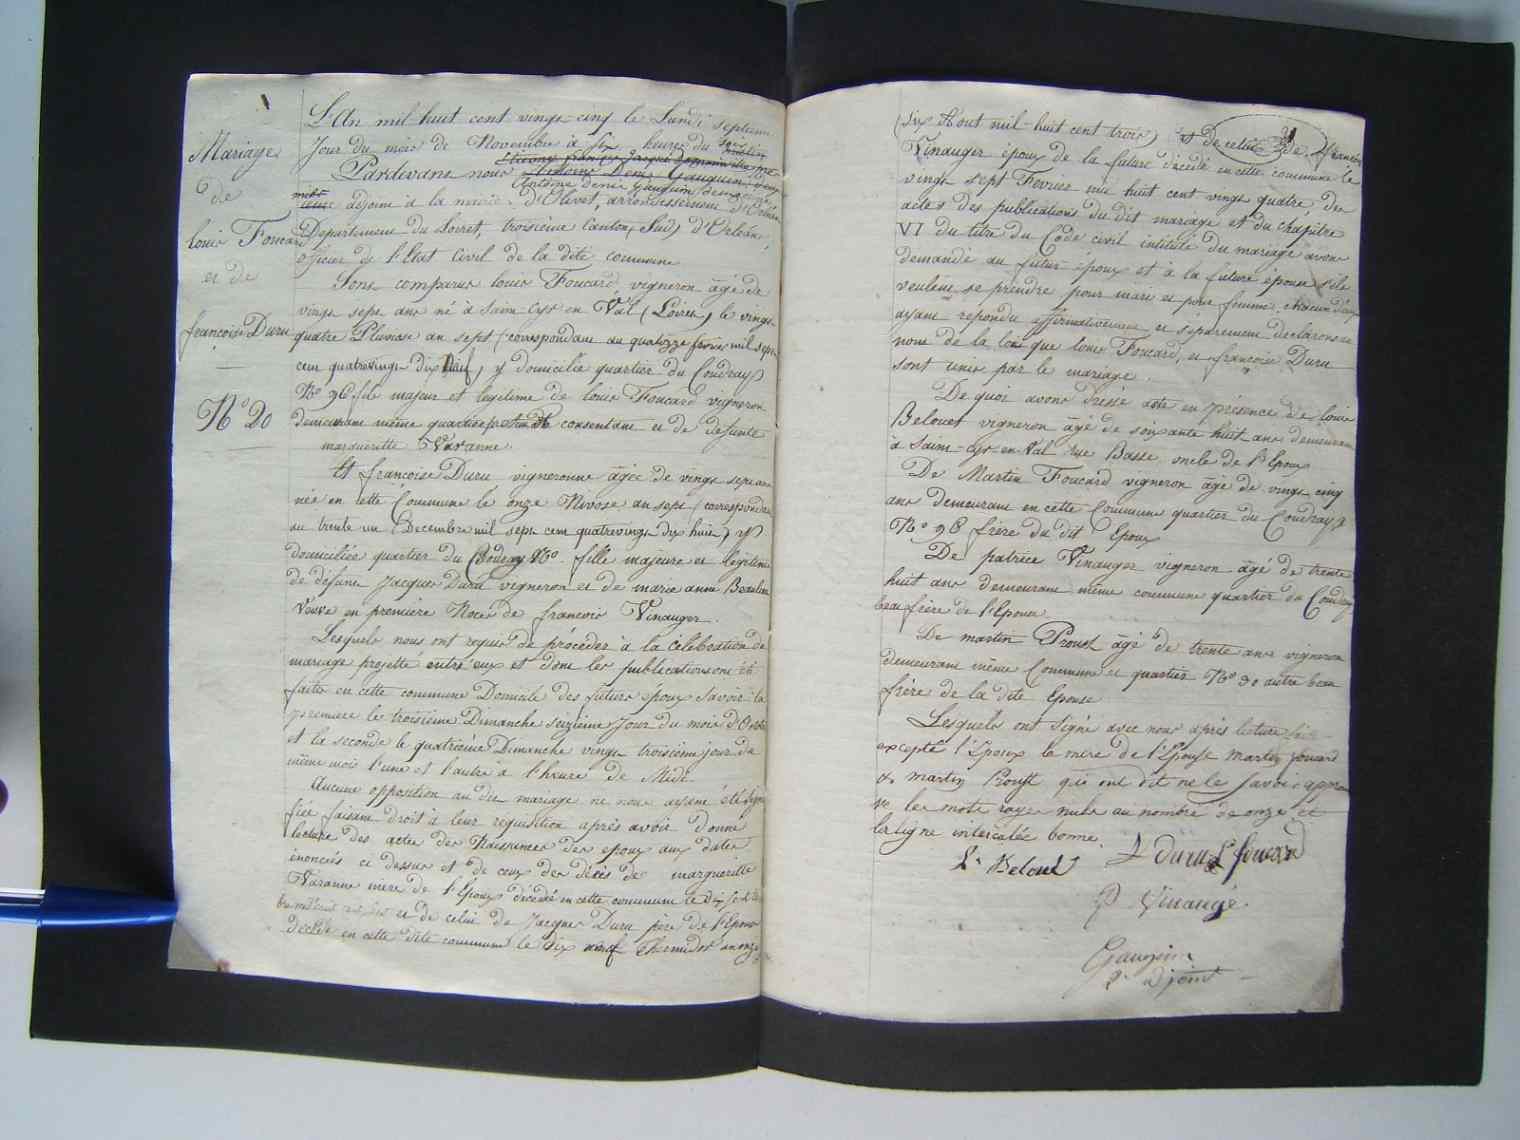 Mariage
de
louis Foucard
et de
françoise Duru
N° 20
L'An mil huit cent vingt-cinq le Lundi septieme
Jour du mois de Novembre à six heures du soir
Pardevant nous
Antoine Denis Gauguin
adjoint à la mairie d'Olivet, arrondissement d'Orléans
Departement du Loiret, troisieme Canton (Sud) d'Orléans,
officier de l'Etat Civil de la dite commune
Sont comparus louis Foucard vigneron âgé de
vingt sept ans né à Saint Cyr en Val (Loiret) le vingt
quatre Pluviose an sept (correspondant au quatorze fevrier mil sept
cent quatrevingt dix Neuf) y domicilié quartier du Coudray
N° 96 fils majeur et legitime de louis Foucard vigneron
demeurant même quartier consentant et de defunte
margueritte Varanne
Et françoise Duru vigneronne âgée de vingt sept ans
née en cette Commune le onze Nivose an sept (correspondant
au trente un Decembre mil sept cent quatrevingt dix huit) y
domiciliée quartier du Coudray N° fille majeure et légitime
de défunt Jacques Duru vigneron et de marie anne Beaulieu
Veuve en première Noce de françois Vinauger.
Lesquels nous ont requis de procéder à la célébration du
mariage projetté entre eux et dont les publications ont été
faites en cette commune Domicile des futurs epoux Savoir: la
premiere le troisieme Dimanche seizieme Jour du mois d'Octobre
et la seconde le quatrieme Dimanche vingt troisieme jour du
même mois l'une et l'autre à l'heure de Midi
Aucune opposition au dit mariage ne nous ayant été signi
fiée faisant droit à leur requisition après avoir donné
lecture des actes des Naissances des epoux aux dates
énoncés ci dessus et de ceux des décès de margueritte
Varanne mère de l'Epoux décédé en cette commune le dix sept
et de celui de Jacques Duru père de l'Epouse
décédé en cette dite commune le dix neuf thermidor an onze
(six Aout mil-huit cent trois) et de celui de françois
Vinauger époux de la future décédé en cette commune le
vingt sept Fevrier mil huit cent vingt quatre, des
actes des publications du dit mariage et du chapitre
VI du titre du Code civil intitulé du mariage avons
demandé au futur époux et à la future épouse s'ils
veulent se prendre pour mari et pour femme, chacun d'eux
ayant repondu affirmativement et séparement declarons au
nom de la loi que louis Foucard, et françoise Duru
sont unis par le mariage.
De quoi avons dressé acte en présence de louis
Belouet vigneron âgé de soixante huit ans demeurant
à Saint-cyr-en-Val rue Basse oncle de l'Epoux
De Martin Foucard vigneron âgé de vingt cinq
ans demeurant en cette Commune quartier du Coudray
N° 96 frère du dit Epoux
De patrice Vinauger vigneron âgé de trente
huit ans demeurant même commune quartier du Coudray
beau frère de l'Epouse
De martin Proust âgé de trente ans vigneron
demeurant même Commune et quartier N° 90 autre beau
frère de la dite Epouse
Lesquels ont signé avec nous après lecture faite
excepté l'Epoux la mere de l'Epouse Martin foucard
& martin Proust qui ont dit ne le savoir appro
les mots rayés nuls au nombre de onze et
la ligne intercalée bonne.
L. Belouet f duru L foucard
P Vinaugé.
Gauguin
adjoint